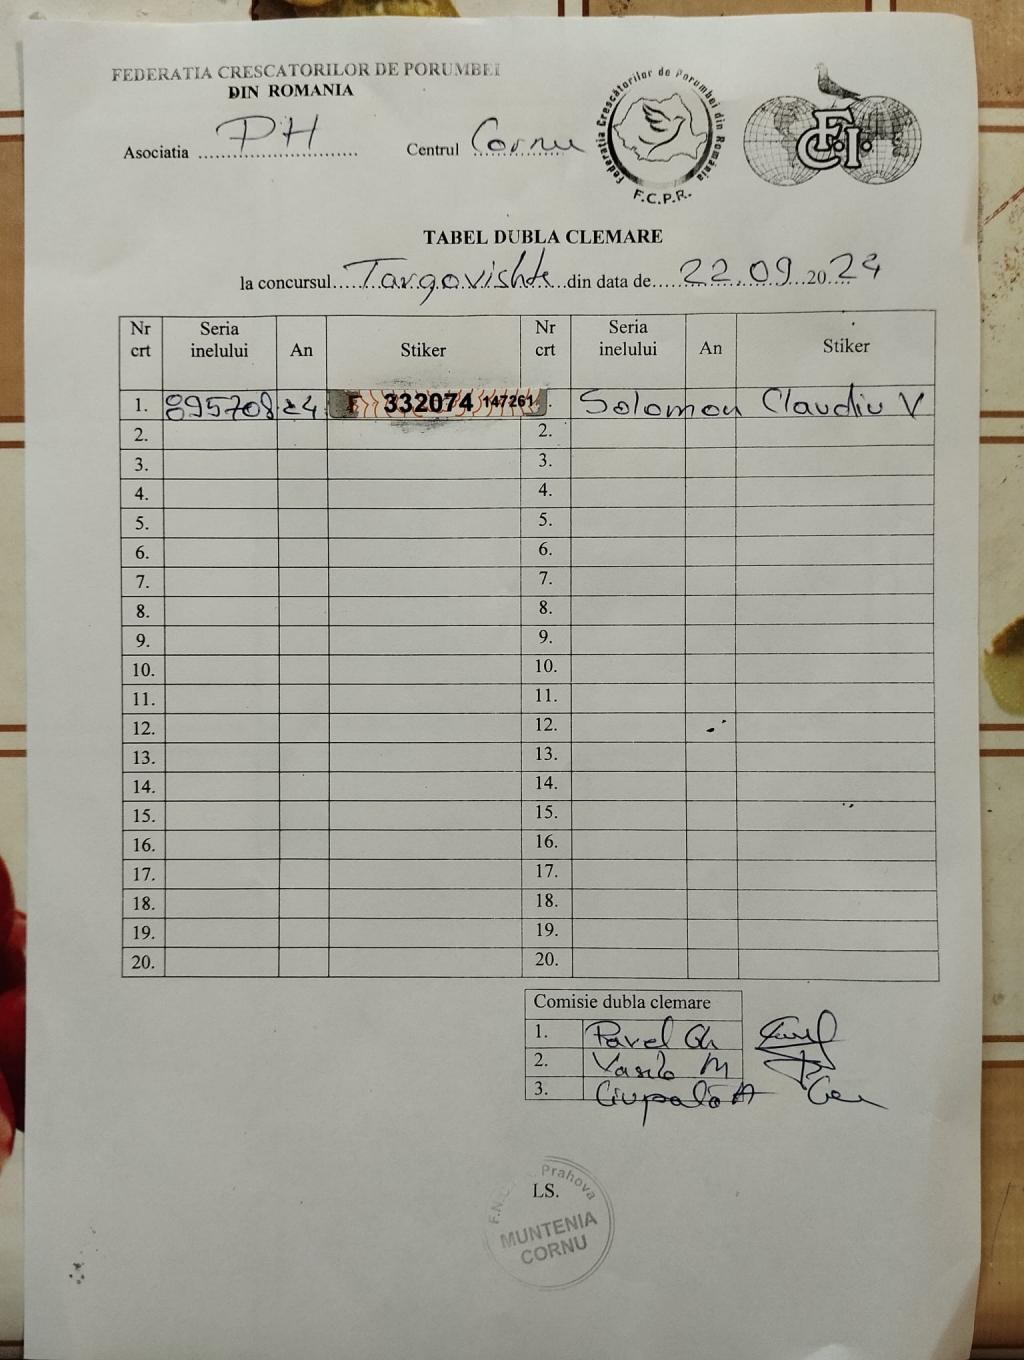 FEDERATIA CRESCATORILOR DE PORUMBEI
DIN ROMANIA
Asociatia PH Centrul Cornu
Federatia Crescătorilor de Porumbei din România
F.C.P.R.
FCI
TABEL DUBLA CLEMARE
la concursul Targovishte din data de 22.09.2024
Nr crt Seria inelului An Stiker Nr crt Seria inelului An Stiker
1. 895708 24 F 332074 147261 Solomon Claudiu V
2. 2.
3. 3.
4. 4.
5. 5.
6. 6.
7. 7.
8. 8.
9. 9.
10. 10.
11. 11.
12. 12.
13. 13.
14. 14.
15. 15.
16. 16.
17. 17.
18. 18.
19. 19.
20. 20.
Comisie dubla clemare
1. Pavel Gh
2. Vasile M
3. Ciupală A
LS.
Prahova
MUNTENIA
CORNU